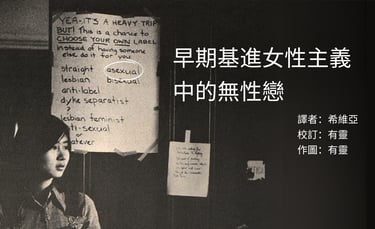 YEA-ITS A HEAVY TRIP
BUT! This is a chance to
CHOOSE YOUR OWN LABEL
instead of having someone
else do it for you
straight asexual
lesbian bisexual
anti-label
dyke separatist
?
lesbian feminist
ti-sexual
or
atever
早期基進女性主義
中的無性戀
譯者：希維亞
校訂：有靈
作圖：有靈